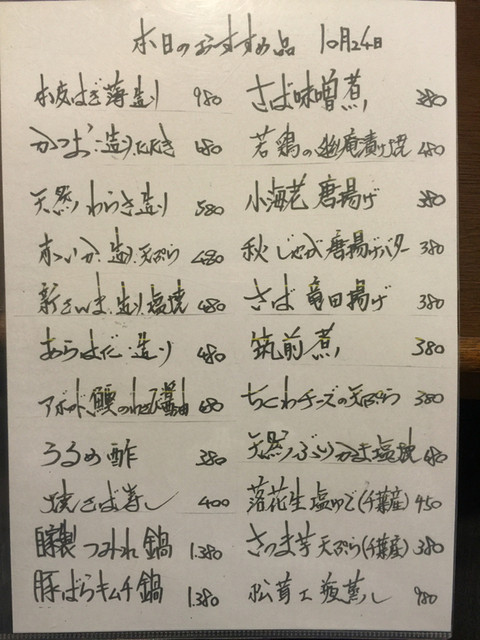 本日のおすすめ品 10月24日
本皮はぎ薄造り 980
かつお 造り.たたき 480
天然わらさ造り 580
ホいか.造り.天ぷら 480
新さんま.造り.塩焼 480
あらはだ 造り 480
アボカド鰻のわさび醤油 480
うるめ酢 380
焼さば寿し 400
自家製つみれ鍋 1.380
豚ばらキムチ鍋 1.380
さば味噌煮 380
若鶏の幽庵漬け焼 480
小海老 唐揚げ 380
秋じゃが唐揚げバター 380
さば 竜田揚げ 380
筑前煮 380
ちくわチーズの天ぷら 380
天然ぶりかま塩焼 480
落花生塩ゆで(千葉産) 450
さつま芋天ぷら(千葉産) 380
松茸土瓶蒸し 980